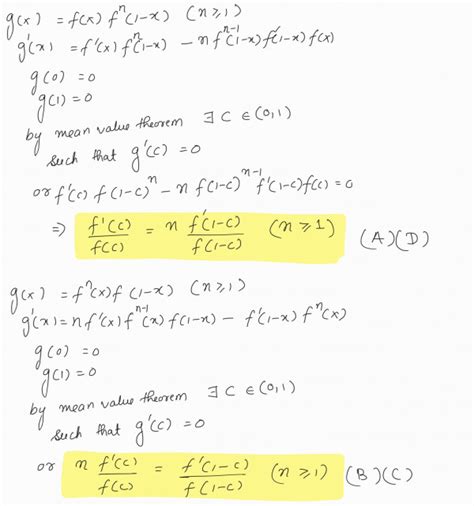 g(x) = f(x) fⁿ(1-x) (n≥1)
g'(x) = f'(x) fⁿ(1-x) - n fⁿ⁻¹(1-x) f'(1-x) f(x)
g(0) = 0
g(1) = 0
by mean value theorem ∃ C ∈ (0,1)
such that g'(c) = 0
or f'(c) f(1-c)ⁿ - n f(1-c)ⁿ⁻¹ f'(1-c) f(c) = 0
⇒ f'(c)/f(c) = n f'(1-c)/f(1-c) (n≥1) (A)(D)
g(x) = fⁿ(x) f(1-x) (n≥1)
g'(x) = n f'(x) fⁿ⁻¹(x) f(1-x) - f'(1-x) fⁿ(x)
g(0) = 0
g(1) = 0
by mean value theorem ∃ C ∈ (0,1)
such that g'(c) = 0
or n f'(c)/f(c) = f'(1-c)/f(1-c) (n≥1) (B)(C)